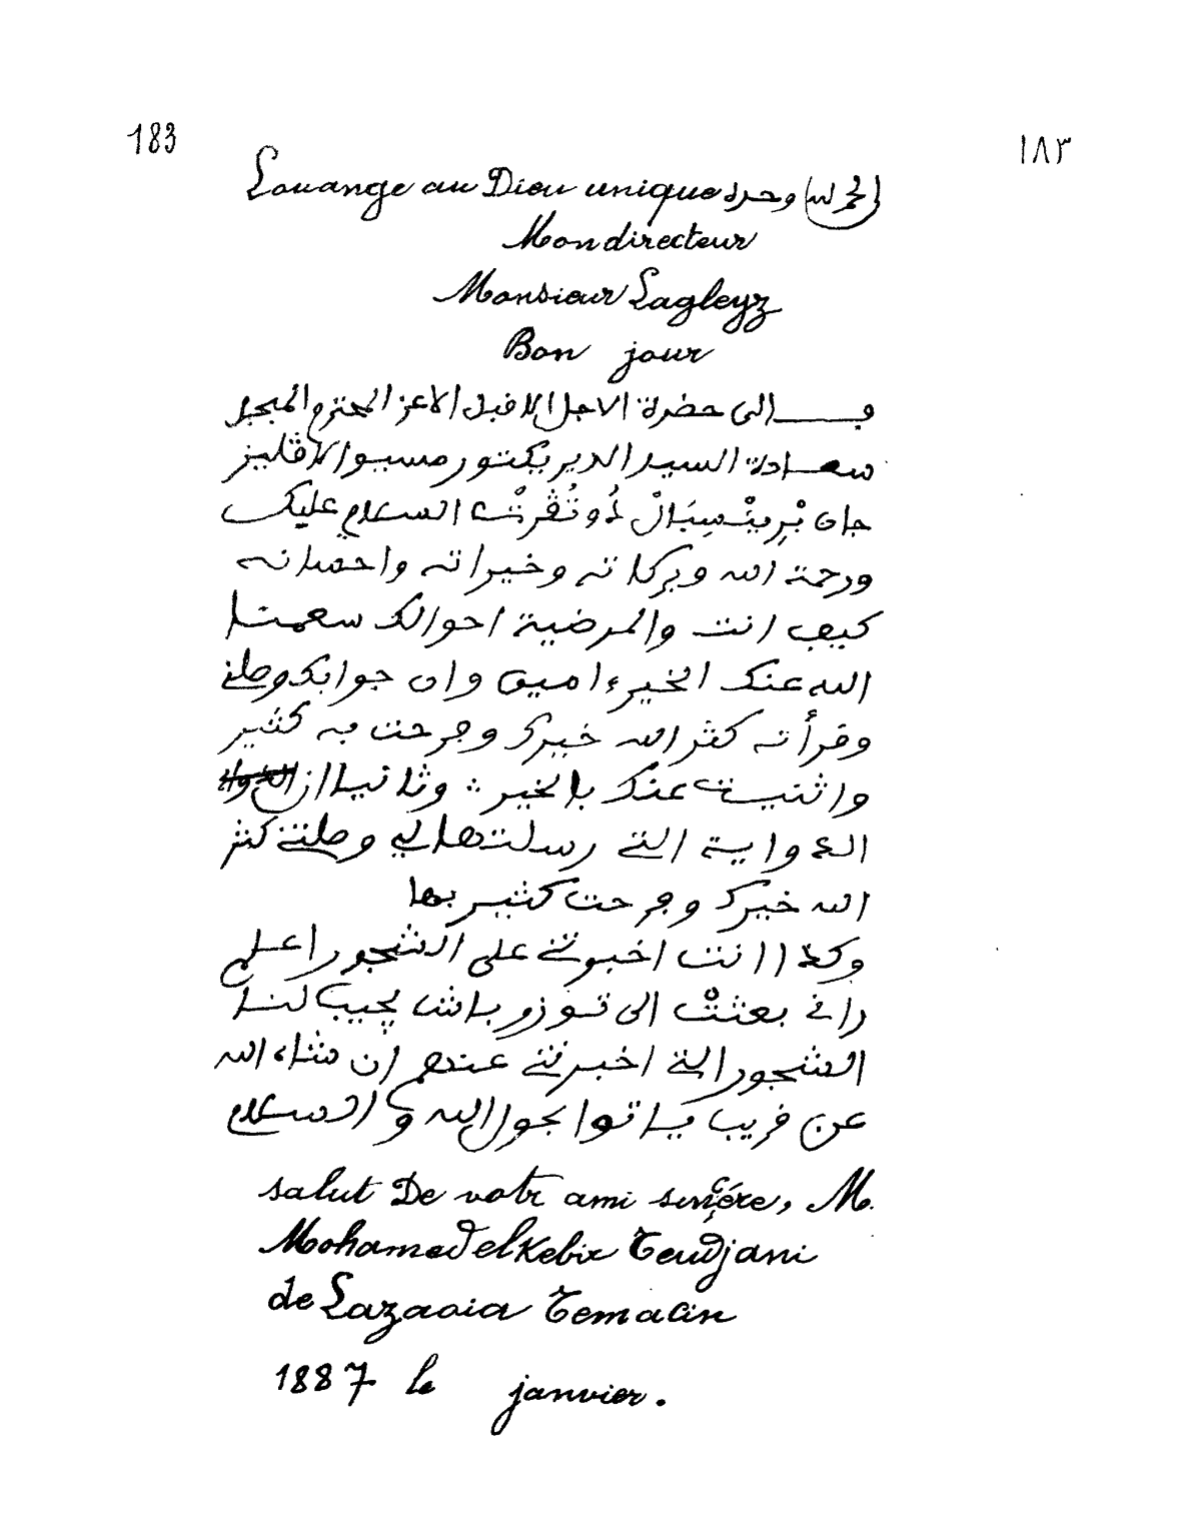 183
١٨٣
Louange au Dieu unique الحمد لله وحده
Mon directeur
Monsieur Lagleyz
Bon jour
الى حضرة الاجل الافضل الاعز المحترم المبجل
سعادة السيد الديريكتور مسيو لاڨليز
جان بْرِينْسِبَالْ دُو تُڨُرْتْ السلام عليك
ورحمة الله وبركاته وخيراته واحسانه
كيف انت والمرضية احوالك سعمتا
الله عنك الخير ءامين وان جوابك وصلني
وقرأته كثر الله خيرك وفرحت به كثير
واثنيت عنك بالخير ∴ وثانيا ان
الدواية التي رسلتها لي وصلتني كثر
الله خيرك وفرحت كثير بها
وكذا انت اخبرتني على الشجور اعلم
راني بعثتْ الى توزر باش يجيب لنا
الشجور التي اخبرتني عندهم ان شاء الله
عن قريب ياتوا بحول الله والسلام
salut De votr ami sinçére, M.
Mohamed el Kebir Teudjani
de Lazaoia Temacin
1887 le janvier.